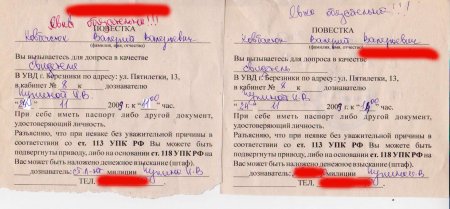 Явка обязательна!!!
ПОВЕСТКА
Валерий Валерьевич
(фамилия, имя, отчество)
Вы вызываетесь для допроса в качестве
свидетель
В УВД г. Березники по адресу: ул. Пятилетки, 13,
в кабинет № 8 к дознавателю
11 2009 г. к 11 00 час.
При себе иметь паспорт либо другой документ,
удостоверяющий личность.
Разъясняю, что при неявке без уважительной причины в
соответствии со ст. 113 УПК РФ Вы можете быть
подвергнуты приводу, либо на основании ст. 118 УПК РФ на
Вас может быть наложено денежное взыскание (штраф).
дознаватель: милиции
ТЕЛ.
Явка обязательна!!!
ПОВЕСТКА
Валерий Валерьевич
(фамилия, имя, отчество)
Вы вызываетесь для допроса в качестве
свидетель
В УВД г. Березники по адресу: ул. Пятилетки, 13,
в кабинет № 8 к дознавателю
"24" 11 2009 г. к 00 час.
При себе иметь паспорт либо другой документ,
удостоверяющий личность.
Разъясняю, что при неявке без уважительной причины в
соответствии со ст. 113 УПК РФ Вы можете быть
подвергнуты приводу, либо на основании ст. 118 УПК РФ на
Вас может быть наложено денежное взыскание (штраф).
дознаватель: милиции
ТЕЛ.